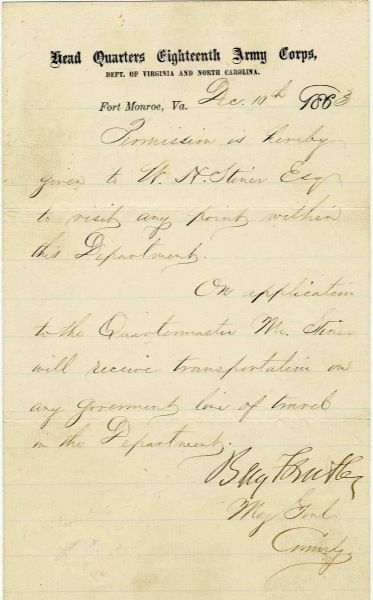 Head Quarters Eighteenth Army Corps,
DEPT. OF VIRGINIA AND NORTH CAROLINA.
Fort Monroe, Va. Dec. 10th 1863
Permission is hereby
given to W. H. Stiner Esq
to visit any point within
this Department.
On application
to the Quartermaster Mr. Stiner
will receive transportation on
any goverment line of travel
in the Department.
Benj F Butler
Maj Genl
Comdg